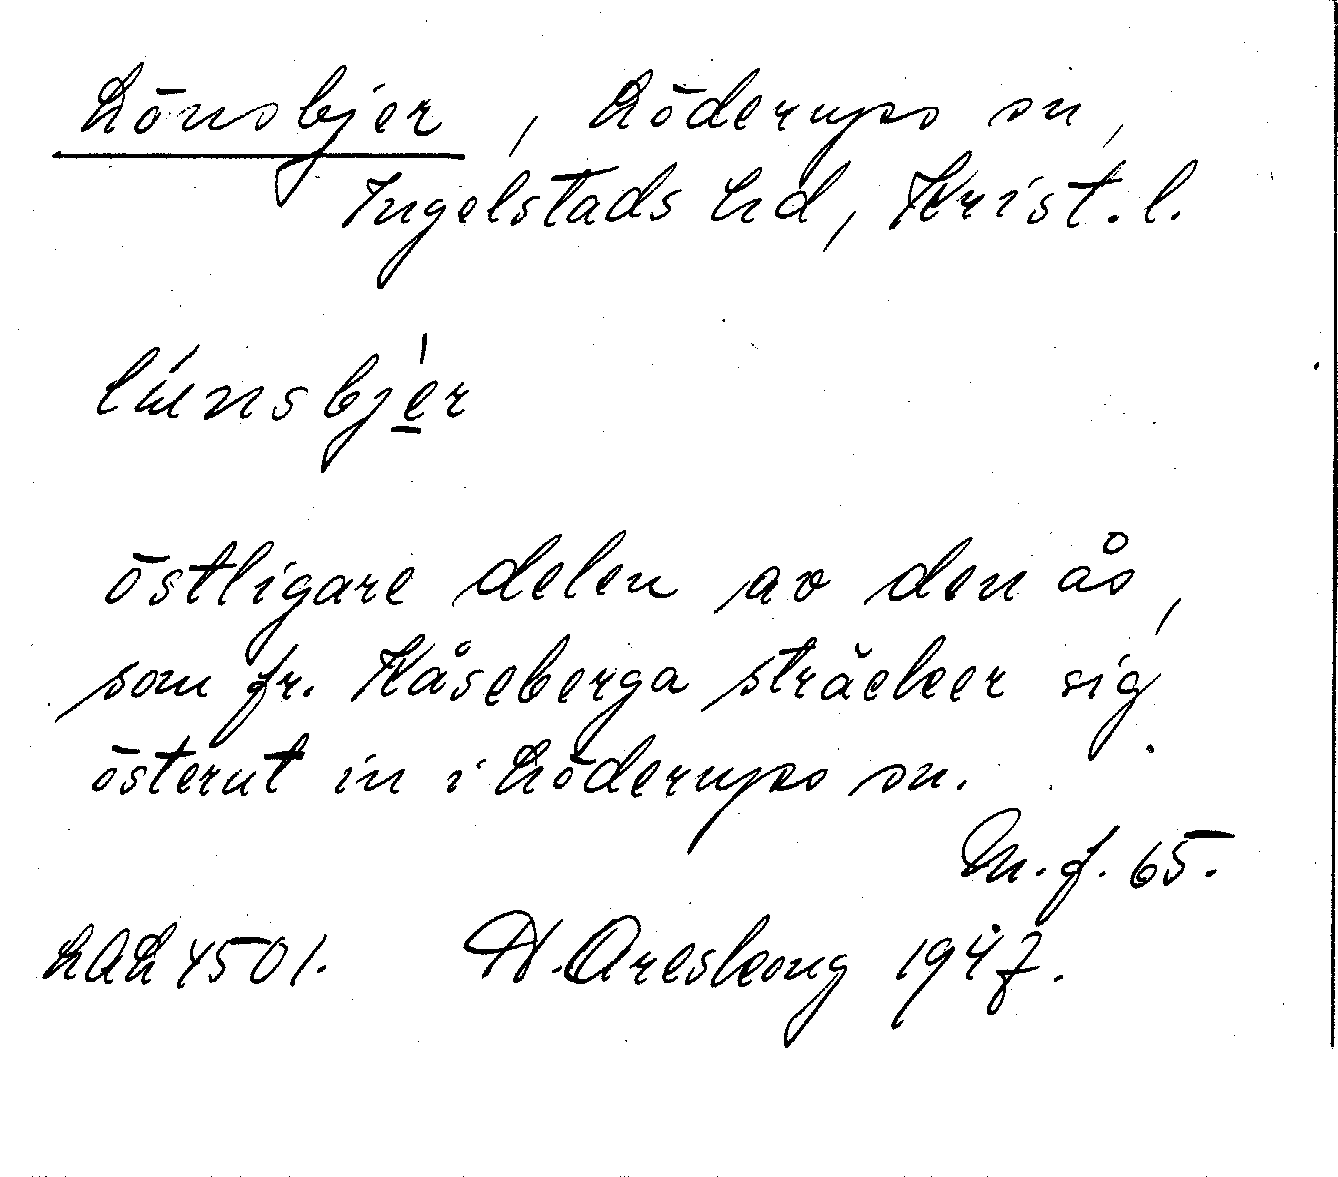 Lönsbjer, Löderups sn,
Ingelstads hd, Krist. l.
östligare delen av den ås,
som fr. Kåseberga sträcker sig
österut in i Löderups sn.
M. f. 65.
LAL 4501. A. Areskoug 1947.